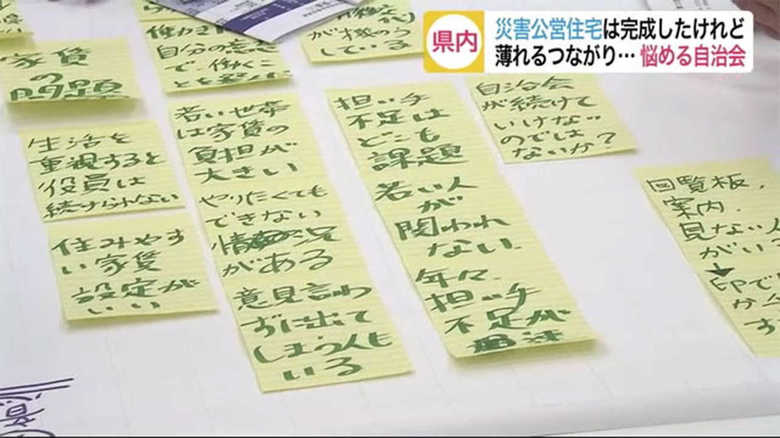 県内
災害公営住宅は完成したけれど
薄れるつながり…悩める自治会
家賃
の問題
生活を
重視すると
役員は
続けられない
住みやす
い家賃
設定が
いい
自分の意志
で働く
若い世帯
は家賃の
負担が
大きい
やりたくても
できない
状況
がある
意見言わ
ずに出て
しまう人も
いる
している
担い手
不足は
どこも
課題
若い人
が
関われ
ない
年々、
担い手
不足が
自治会
が続けて
いけない
のでは
ないか?
回覧板、
案内、
見ない人
がい
印で